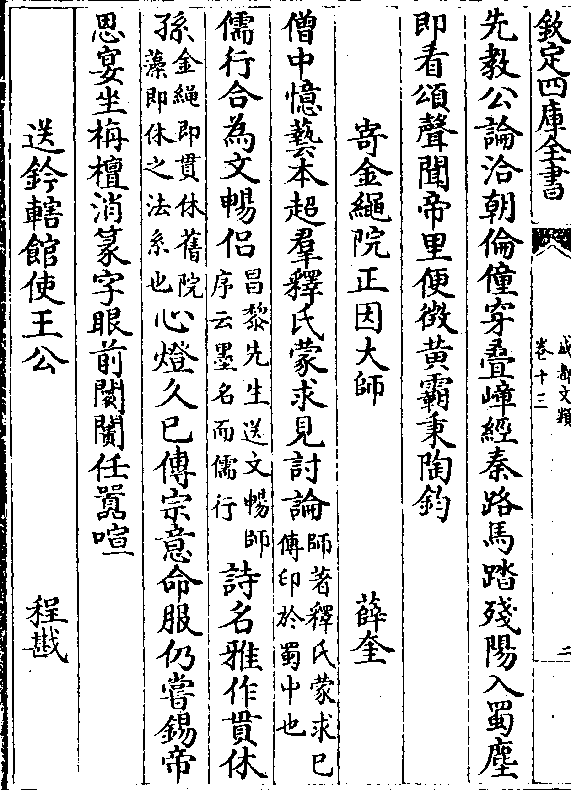 欽定四庫全書
成都文類
卷十三
二
先教公論洽朝倫僮穿疊嶂經秦路馬踏殘陽入蜀塵
即看頌聲聞帝里便徴黄霸秉陶鈞
寄金繩院正因大師 薛奎
僧中憶藝本超羣釋氏蒙求見討論師著釋氏蒙求已傳印於蜀中也
儒行合為文暢侣昌黎先生送文暢師序云墨名而儒行詩名雅作貫休
孫金繩即貫休舊院藻即休之法系也心燈久已傳宗意命服仍嘗錫帝
恩宴坐栴檀消篆字眼前闤闠任囂喧
送鈐轄館使王公 程戡